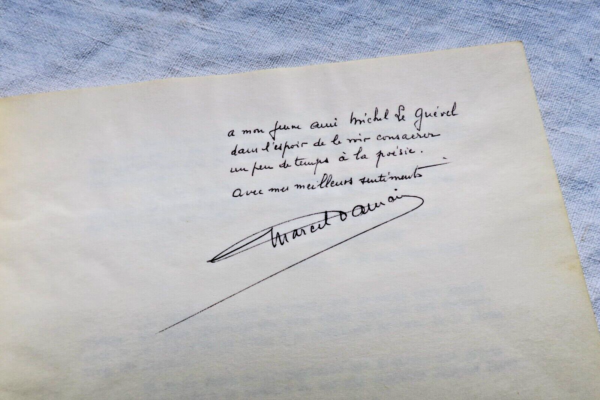 a mon jeune ami Michel Le Guével
dans l'espoir de le voir consacrer
un peu de temps à la poésie.
avec mes meilleurs sentiments
Marcel